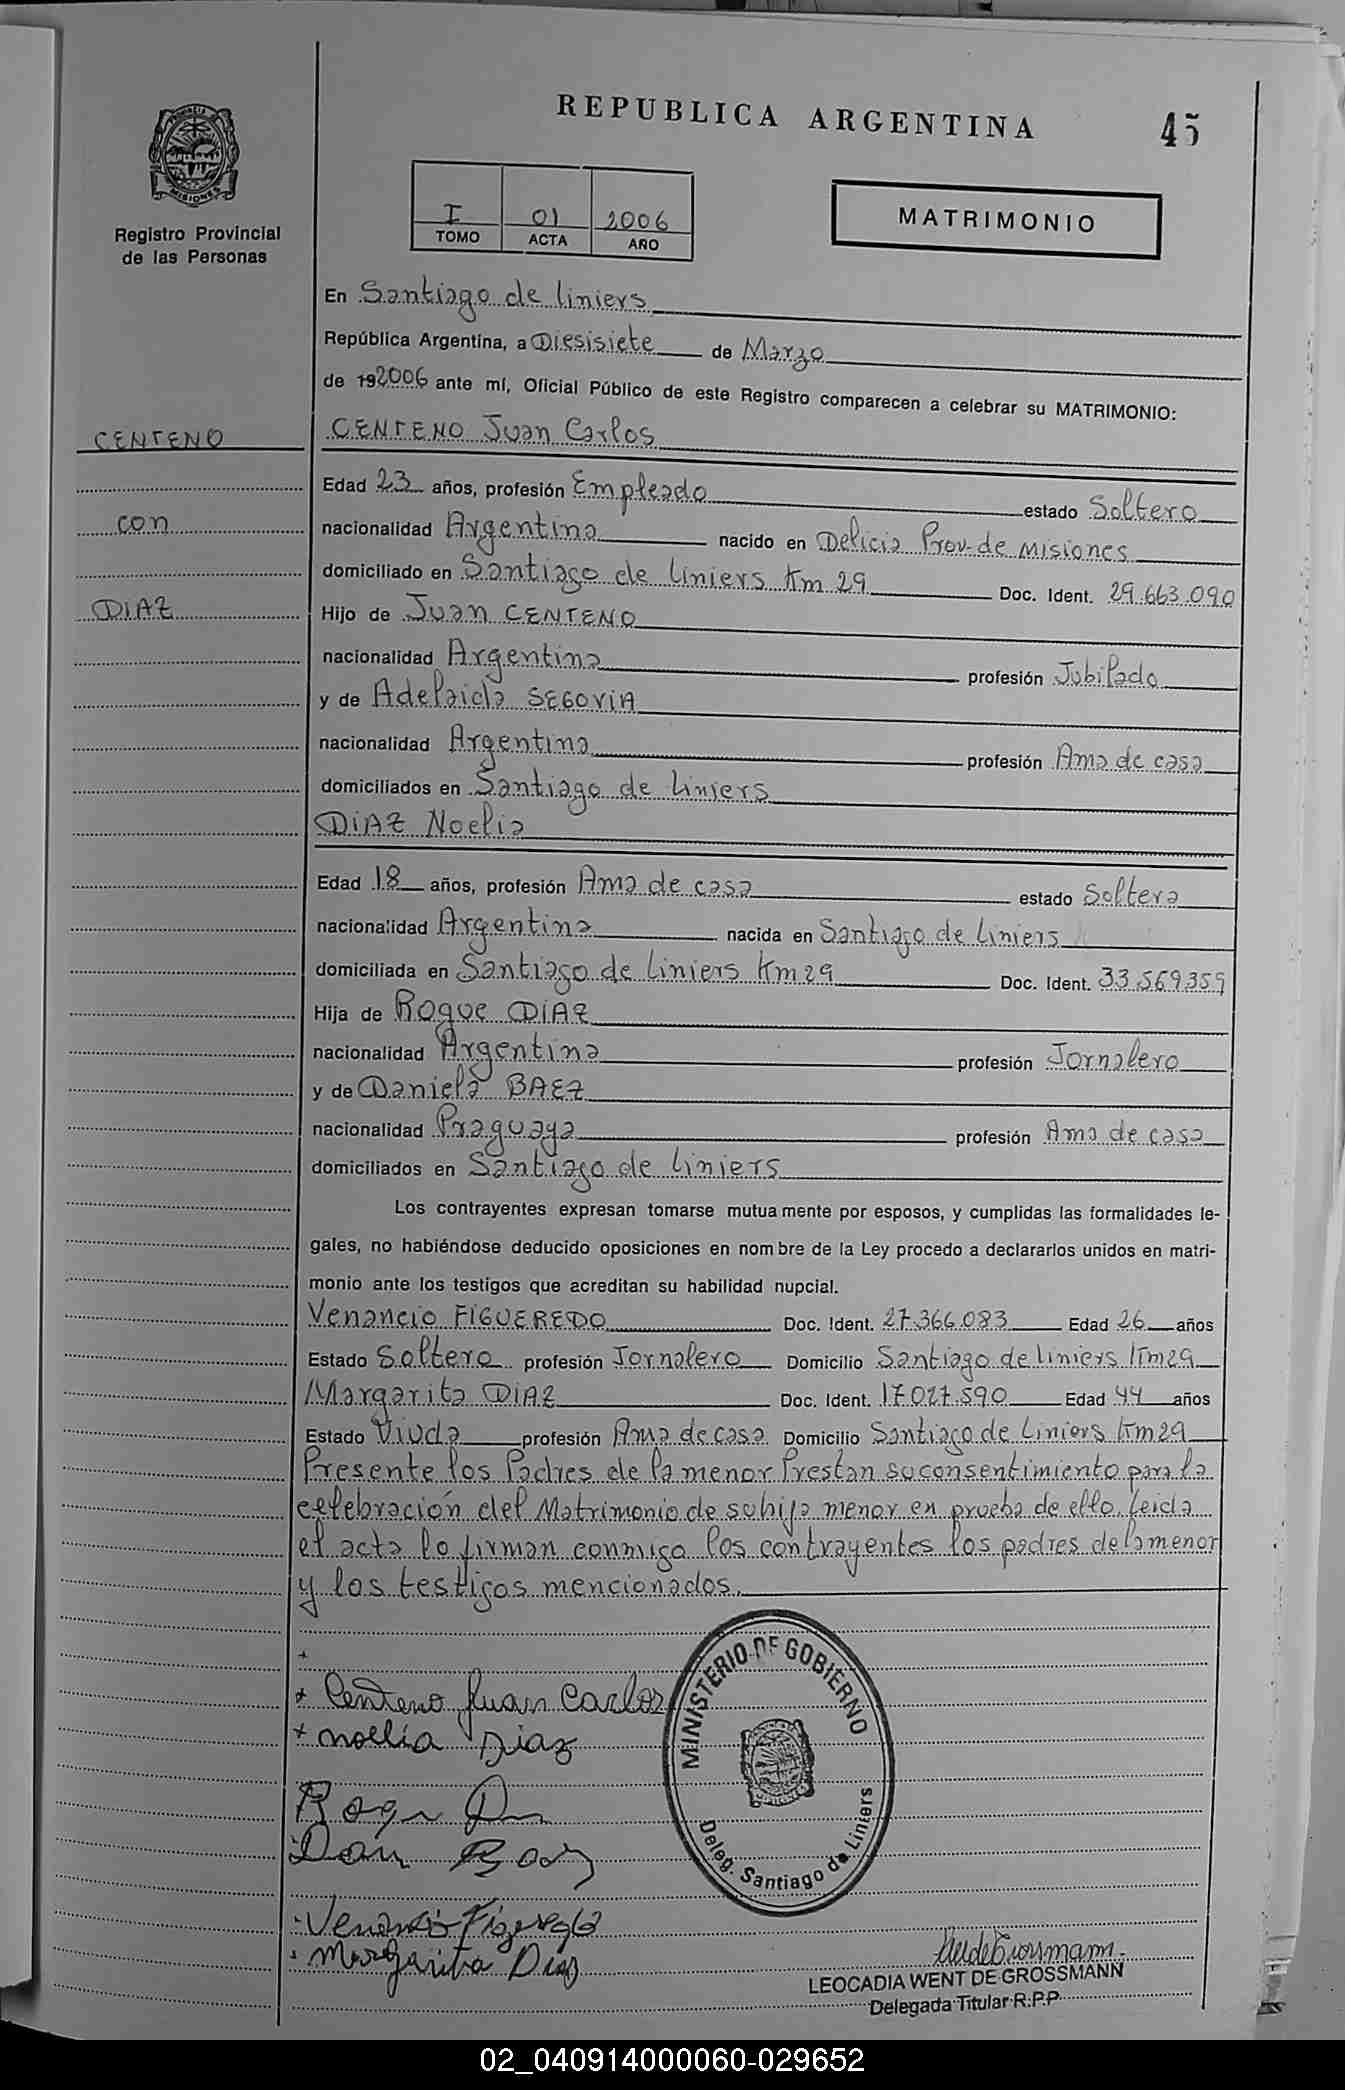 REPUBLICA ARGENTINA
45
PROVINCIA DE
MISIONES
Registro Provincial
de las Personas
I 01 2006
TOMO ACTA AÑO
MATRIMONIO
En Santiago de liniers
República Argentina, a Diesisiete de Marzo
de 192006 ante mí, Oficial Público de este Registro comparecen a celebrar su MATRIMONIO:
CENTENO
CENTENO Juan Carlos
Edad 23 años, profesión Empleado estado Soltero
con
nacionalidad Argentina nacido en Delicia Prov. de Misiones
domiciliado en Santiago de Liniers Km 29 Doc. Ident. 29.663.090
DIAZ
Hijo de Juan CENTENO
nacionalidad Argentina profesión Jubilado
y de Adelaida SEGOVIA
nacionalidad Argentina profesión Ama de casa
domiciliados en Santiago de Liniers
DIAZ Noelia
Edad 18 años, profesión Ama de casa estado Soltera
nacionalidad Argentina nacida en Santiago de Liniers
domiciliada en Santiago de Liniers Km 29 Doc. Ident. 33.569.359
Hija de Roque DIAZ
nacionalidad Argentina profesión Jornalero
y de Daniela BAEZ
nacionalidad Praguaya profesión Ama de casa
domiciliados en Santiago de Liniers
Los contrayentes expresan tomarse mutuamente por esposos, y cumplidas las formalidades le-
gales, no habiéndose deducido oposiciones en nombre de la Ley procedo a declararlos unidos en matri-
monio ante los testigos que acreditan su habilidad nupcial.
Venancio FIGUEREDO Doc. Ident. 27.366.083 Edad 26 años
Estado Soltero profesión Jornalero Domicilio Santiago de liniers Km 29
Margarita DIAZ Doc. Ident. 17.027.590 Edad 44 años
Estado Viuda profesión Ama de casa Domicilio Santiago de Liniers Km 29
Presente los Padres de la menor Prestan su consentimiento para la
celebración del Matrimonio de su hija menor en prueba de ello. Leida
el acta lo firman conmigo los contrayentes los padres de la menor
y los testigos mencionados.
Centeno Juan Carlos
Noelia Diaz
MINISTERIO DE GOBIERNO
Deleg. Santiago de Liniers
Margarita Diaz
LEOCADIA WENT DE GROSSMANN
Delegada Titular R.P.P
02_040914000060-029652